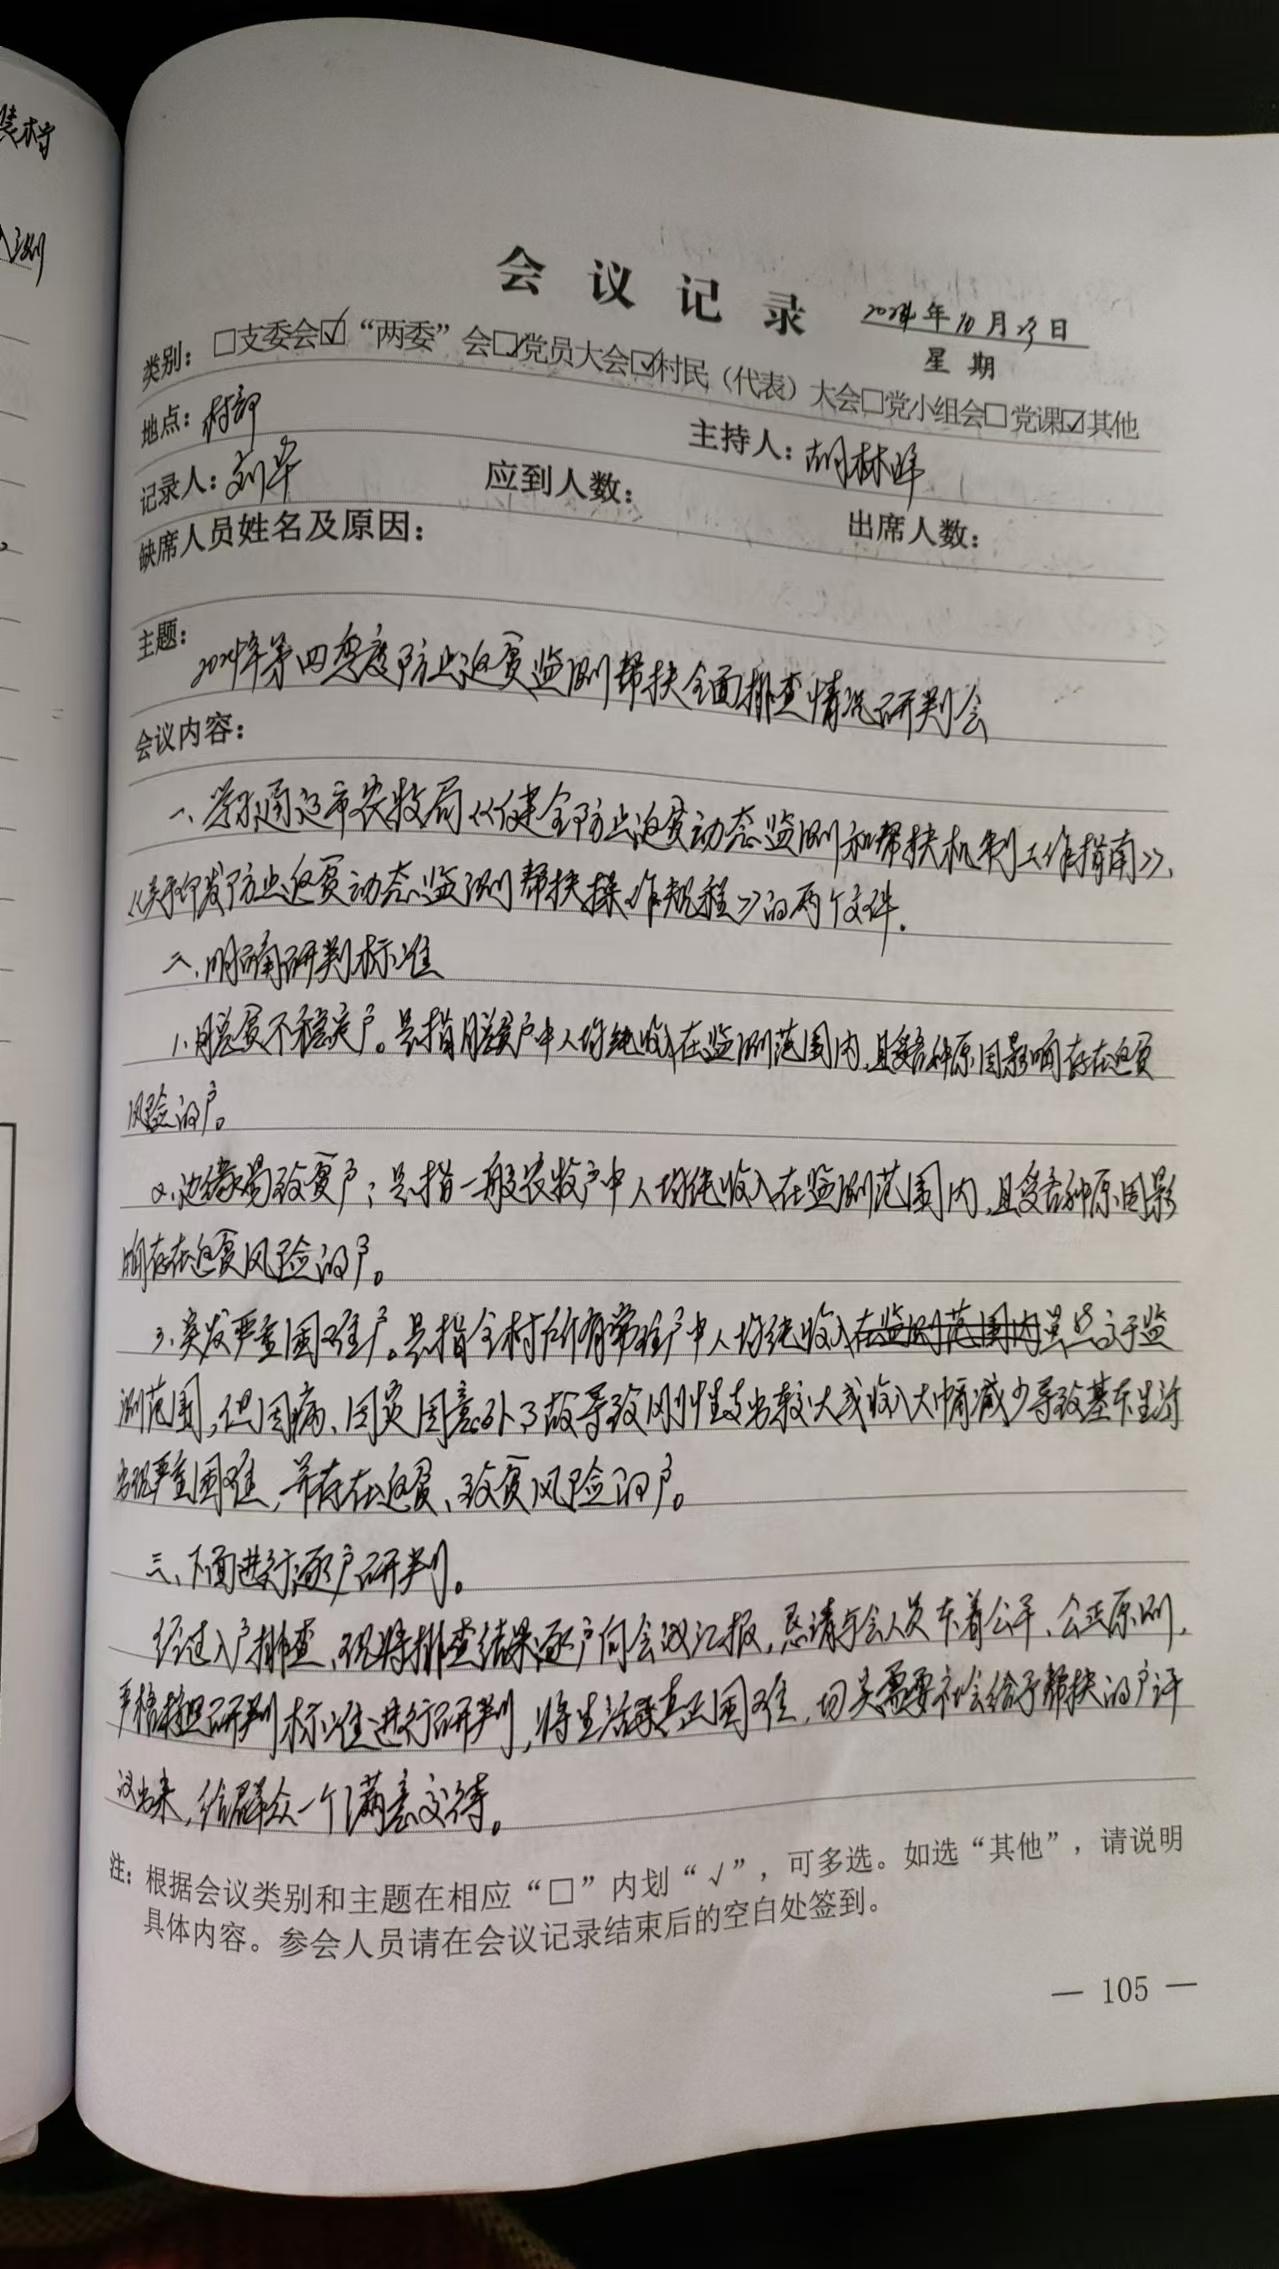 会议记录
2024年10月23日
星期
类别：□支委会☑“两委”会☑党员大会☑村民（代表）大会□党小组会□党课☑其他
地点：村部
主持人：胡林
记录人：刘军
应到人数：
出席人数：
缺席人员姓名及原因：
主题：
2024年第四季度防止返贫监测帮扶全面排查情况研判会
会议内容：
一、学习通辽市农牧局《健全防止返贫动态监测和帮扶机制工作指南》、
《关于印发防止返贫动态监测帮扶操作规程》的两个文件.
二、明确研判标准
1.脱贫不稳定户。是指脱贫户中人均纯收入在监测范围内，且受各种原因影响存在返贫
风险的户。
2.边缘易致贫户；是指一般农牧户中人均纯收入在监测范围内，且受各种原因影
响存在返贫风险的户。
3.突发严重困难户。是指全村所有常住户中人均纯收入在监测范围内虽然高于监
测范围，但因病、因灾因意外事故导致刚性支出较大或收入大幅减少导致基本生活
出现严重困难，并存在返贫、致贫风险的户。
三、下面进行逐户研判。
经过入户排查、现将排查结果逐户向会议汇报，恳请与会人员本着公平、公正原则，
严格按照研判标准进行研判，将生活真正困难，切实需要社会给予帮扶的户评
议出来，给群众一个满意交待。
注：根据会议类别和主题在相应“□”内划“√”，可多选。如选“其他”，请说明
具体内容。参会人员请在会议记录结束后的空白处签到。
— 105 —